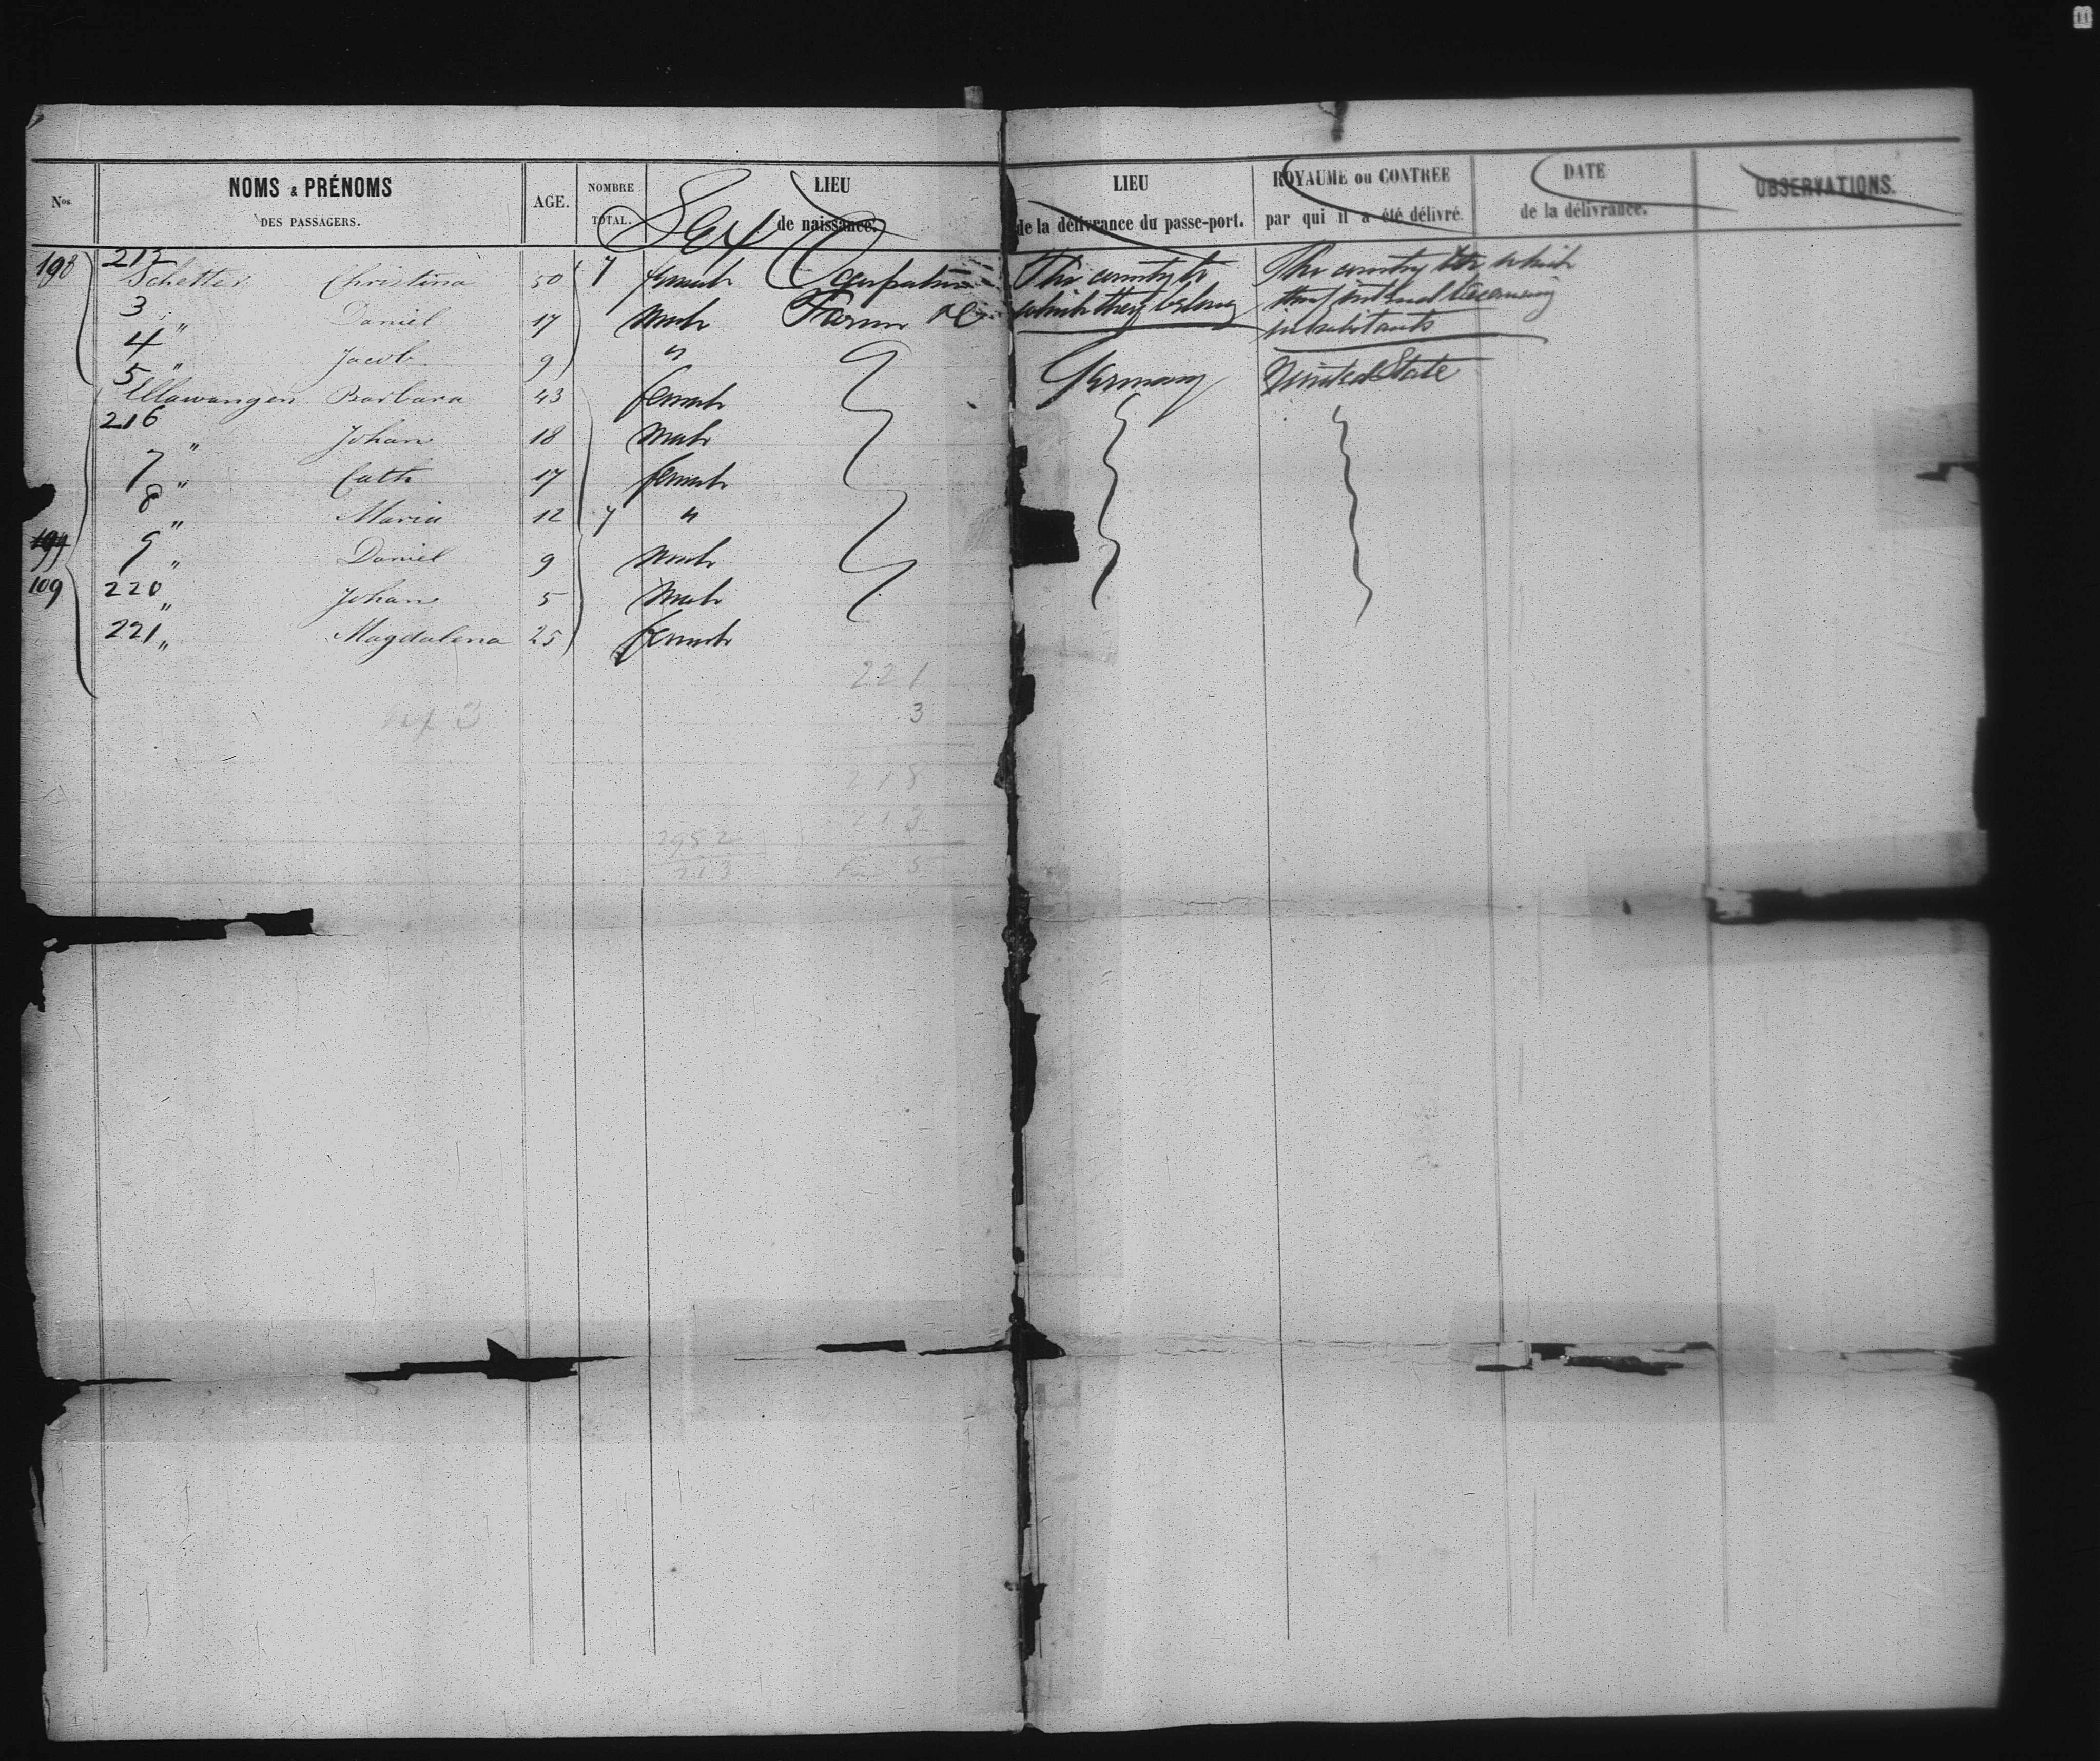 Nos NOMS & PRÉNOMS DES PASSAGERS. AGE. NOMBRE TOTAL. LIEU de naissance. LIEU de la délivrance du passe-port. ROYAUME ou CONTRÉE par qui il a été délivré. DATE de la délivrance. OBSERVATIONS.
Sex Occupation The country to which they belong The country to which they intend becoming inhabitants
198 212 Schetter Christina 50 7 female
3 " Daniel 17 male Farmer
4 " Jacob 9 "
5 Ellawangen Barbara 43 female Germany United State
216 " Johan 18 male
7 " Cath 17 female
8 " Maria 12 7 "
199 9 " Daniel 9 male
109 220 " Johan 5 male
221 " Magdalena 25 female
221
3
218
213
2982
213
5